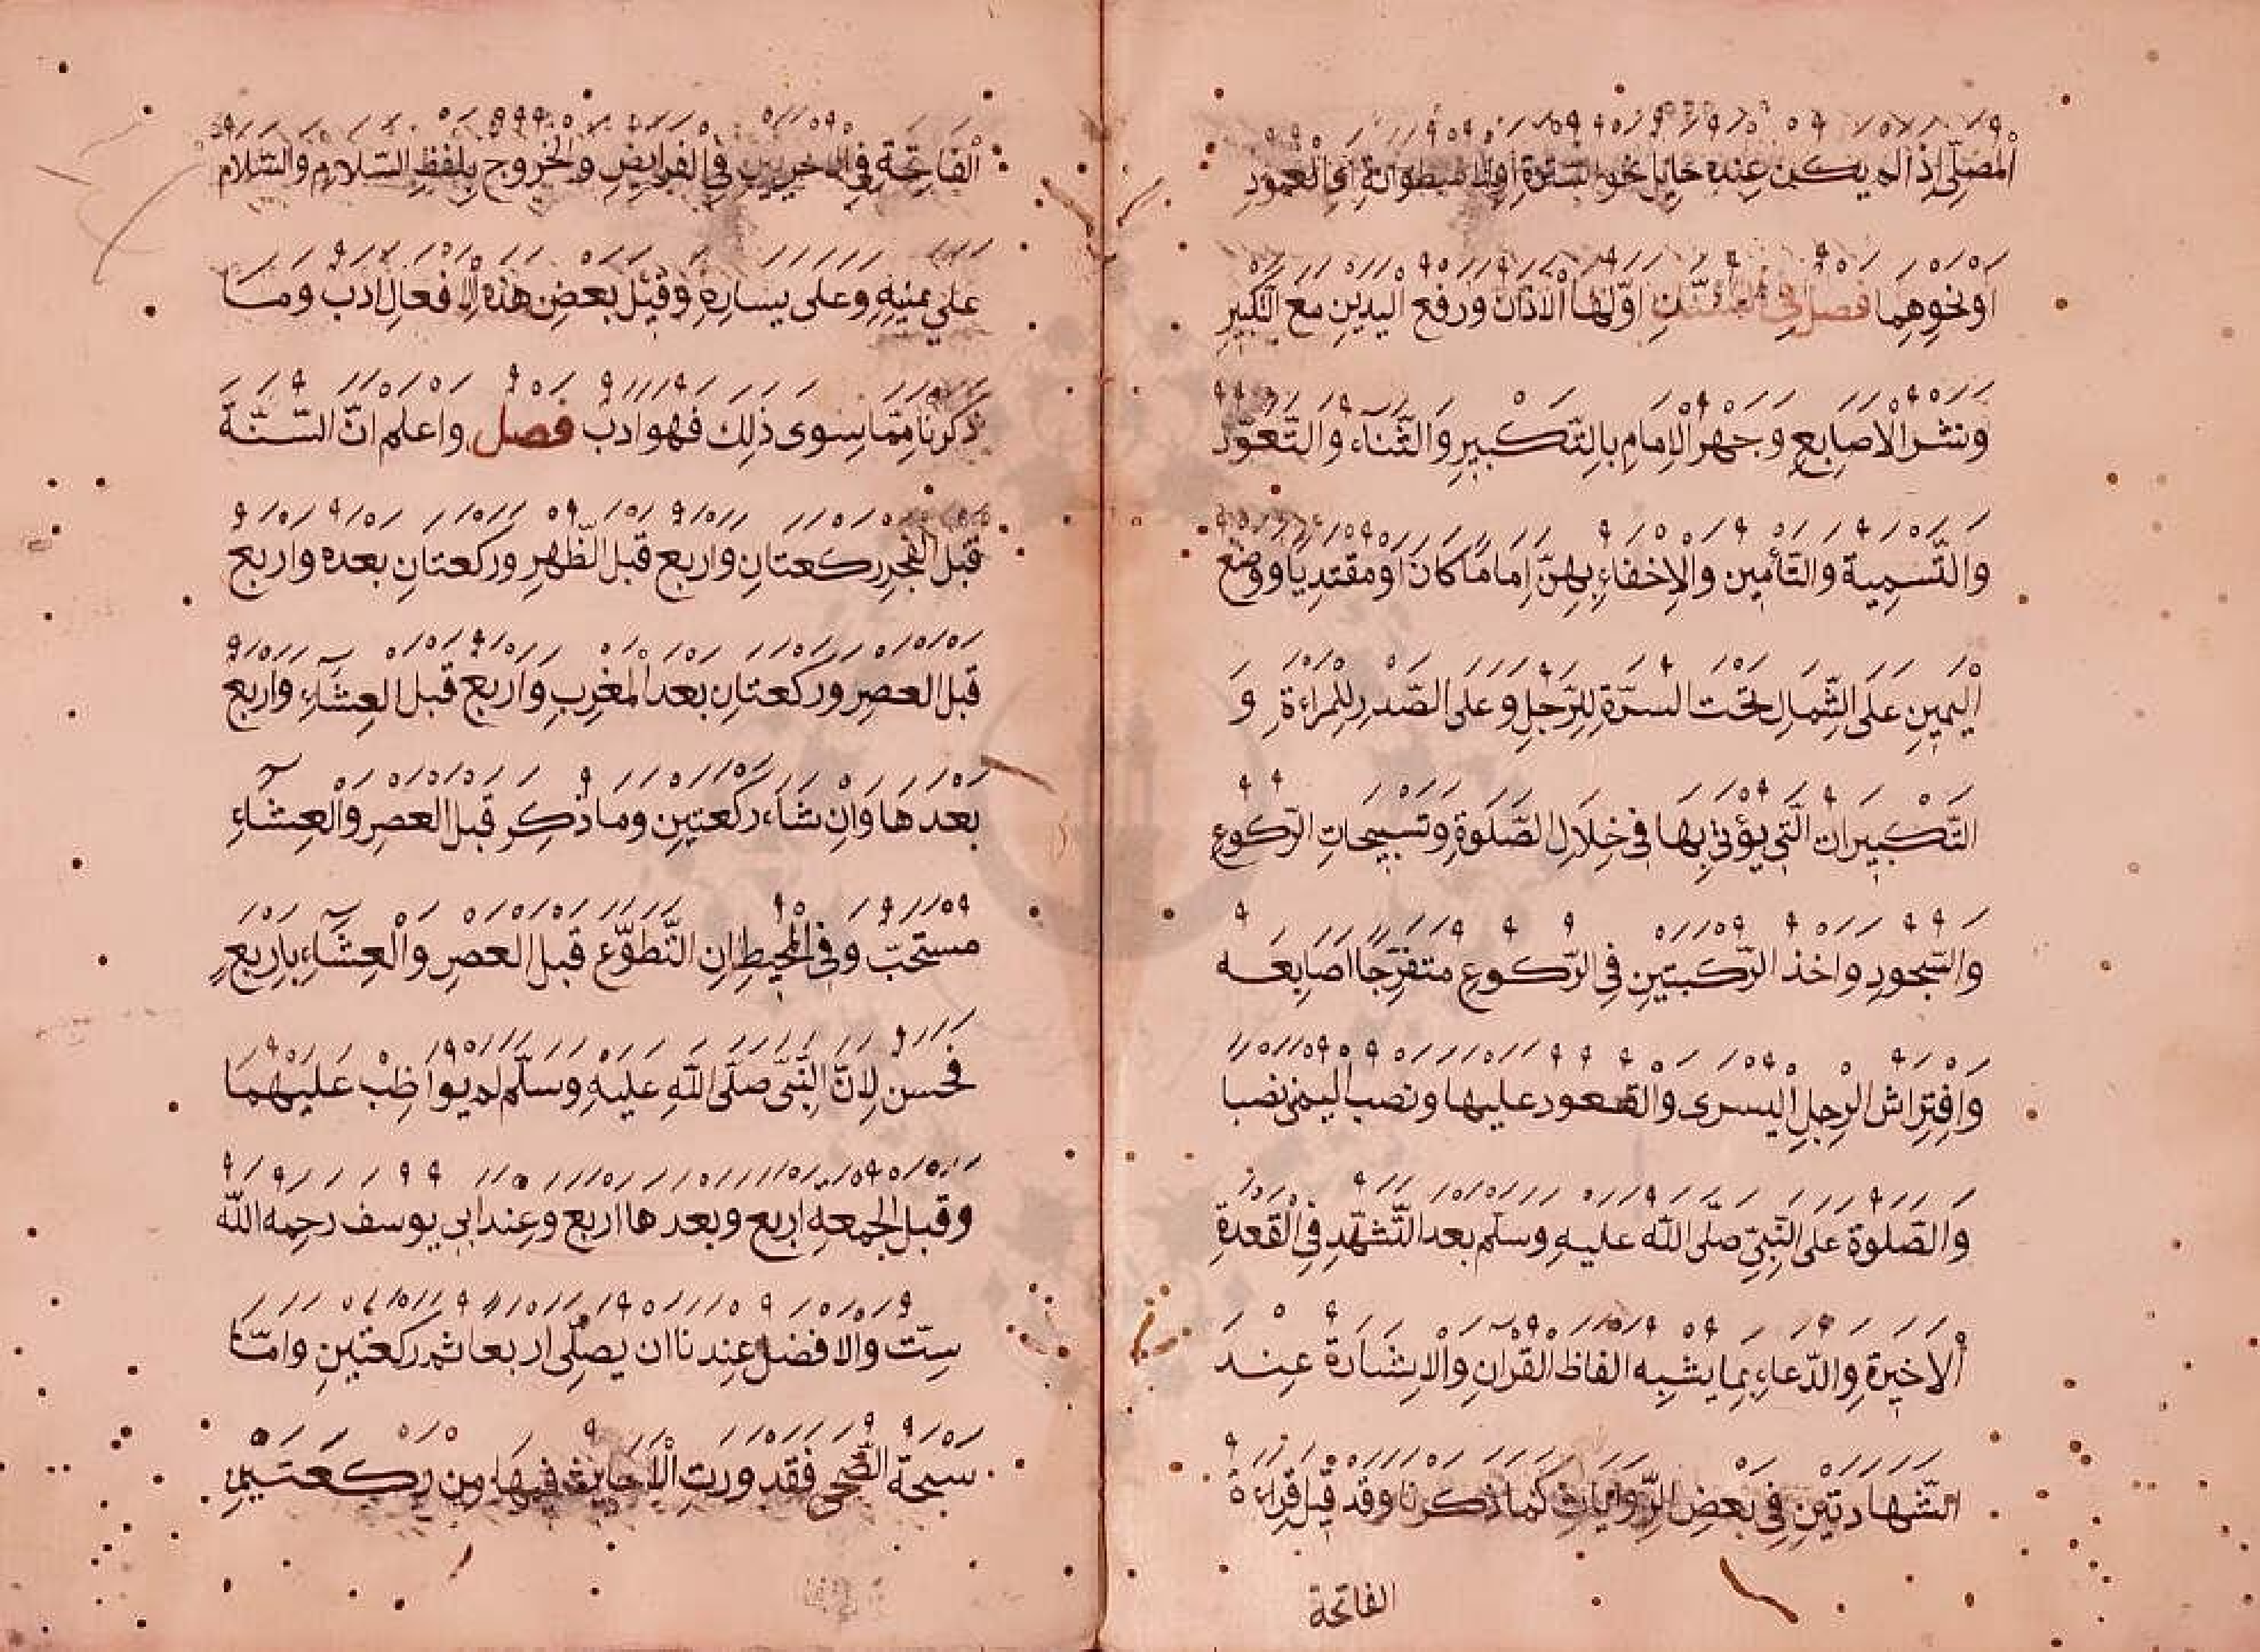 المصلّي إذا لم يكن عنده حايل نحو السترة او الاسطوانة اي العمود
او نحوهما فصل في السنن اوّلها الاذان ورفع اليدين مع التكبير
ونشر الاصابع وجهر الامام بالتّكبير والثّناء والتّعوّذ
والتّسمية والتّأمين والاخفاء بهنّ اماما كان او مقتديا ووضع
اليمين على الشّمال تحت السّرّة للرّجل وعلى الصّدر للمراءة و
التّكبيرات الّتي يؤتى بها في خلال الصّلوة وتسبيحات الرّكوع
والسّجود واخذ الرّكبتين في الرّكوع متفرّجا اصابعه
وافتراش الرجل اليسرى والقعود عليها ونصب اليمنى نصبا
والصّلوة على النّبيّ صلّى الله عليه وسلّم بعد التّشهّد في القعدة
الاخيرة والدّعاء بما يشبه الفاظ القران والاشارة عند
الشّهادتين في بعض الرّوايات كما ذكرنا وقد قيل قراءة
الفاتحة
الفاتحة في الاخريين في الفرايض والخروج بلفظ السّلام والسّلام
على يمينه وعلى يساره وقيل بعض هذه الافعال ادب وما
ذكرنا ممّا سوى ذلك فهو ادب فصل واعلم انّ السّنّة
قبل الفجر ركعتان واربع قبل الظّهر وركعتان بعده واربع
قبل العصر وركعتان بعد المغرب واربع قبل العشاء واربع
بعدها وان شاء ركعتين وما ذكر قبل العصر والعشاء
مستحبّ وفي المحيط ان التّطوّع قبل العصر والعشاء باربع
فحسن لانّ النّبيّ صلّى الله عليه وسلّم لم يواظب عليهما
وقبل الجمعة اربع وبعدها اربع وعند ابي يوسف رحمه الله
ستّ والافضل عندنا ان يصلّي اربعا ثم ركعتين وامّا
سبحة الضّحى فقد وردت الاحاديث فيها من ركعتين